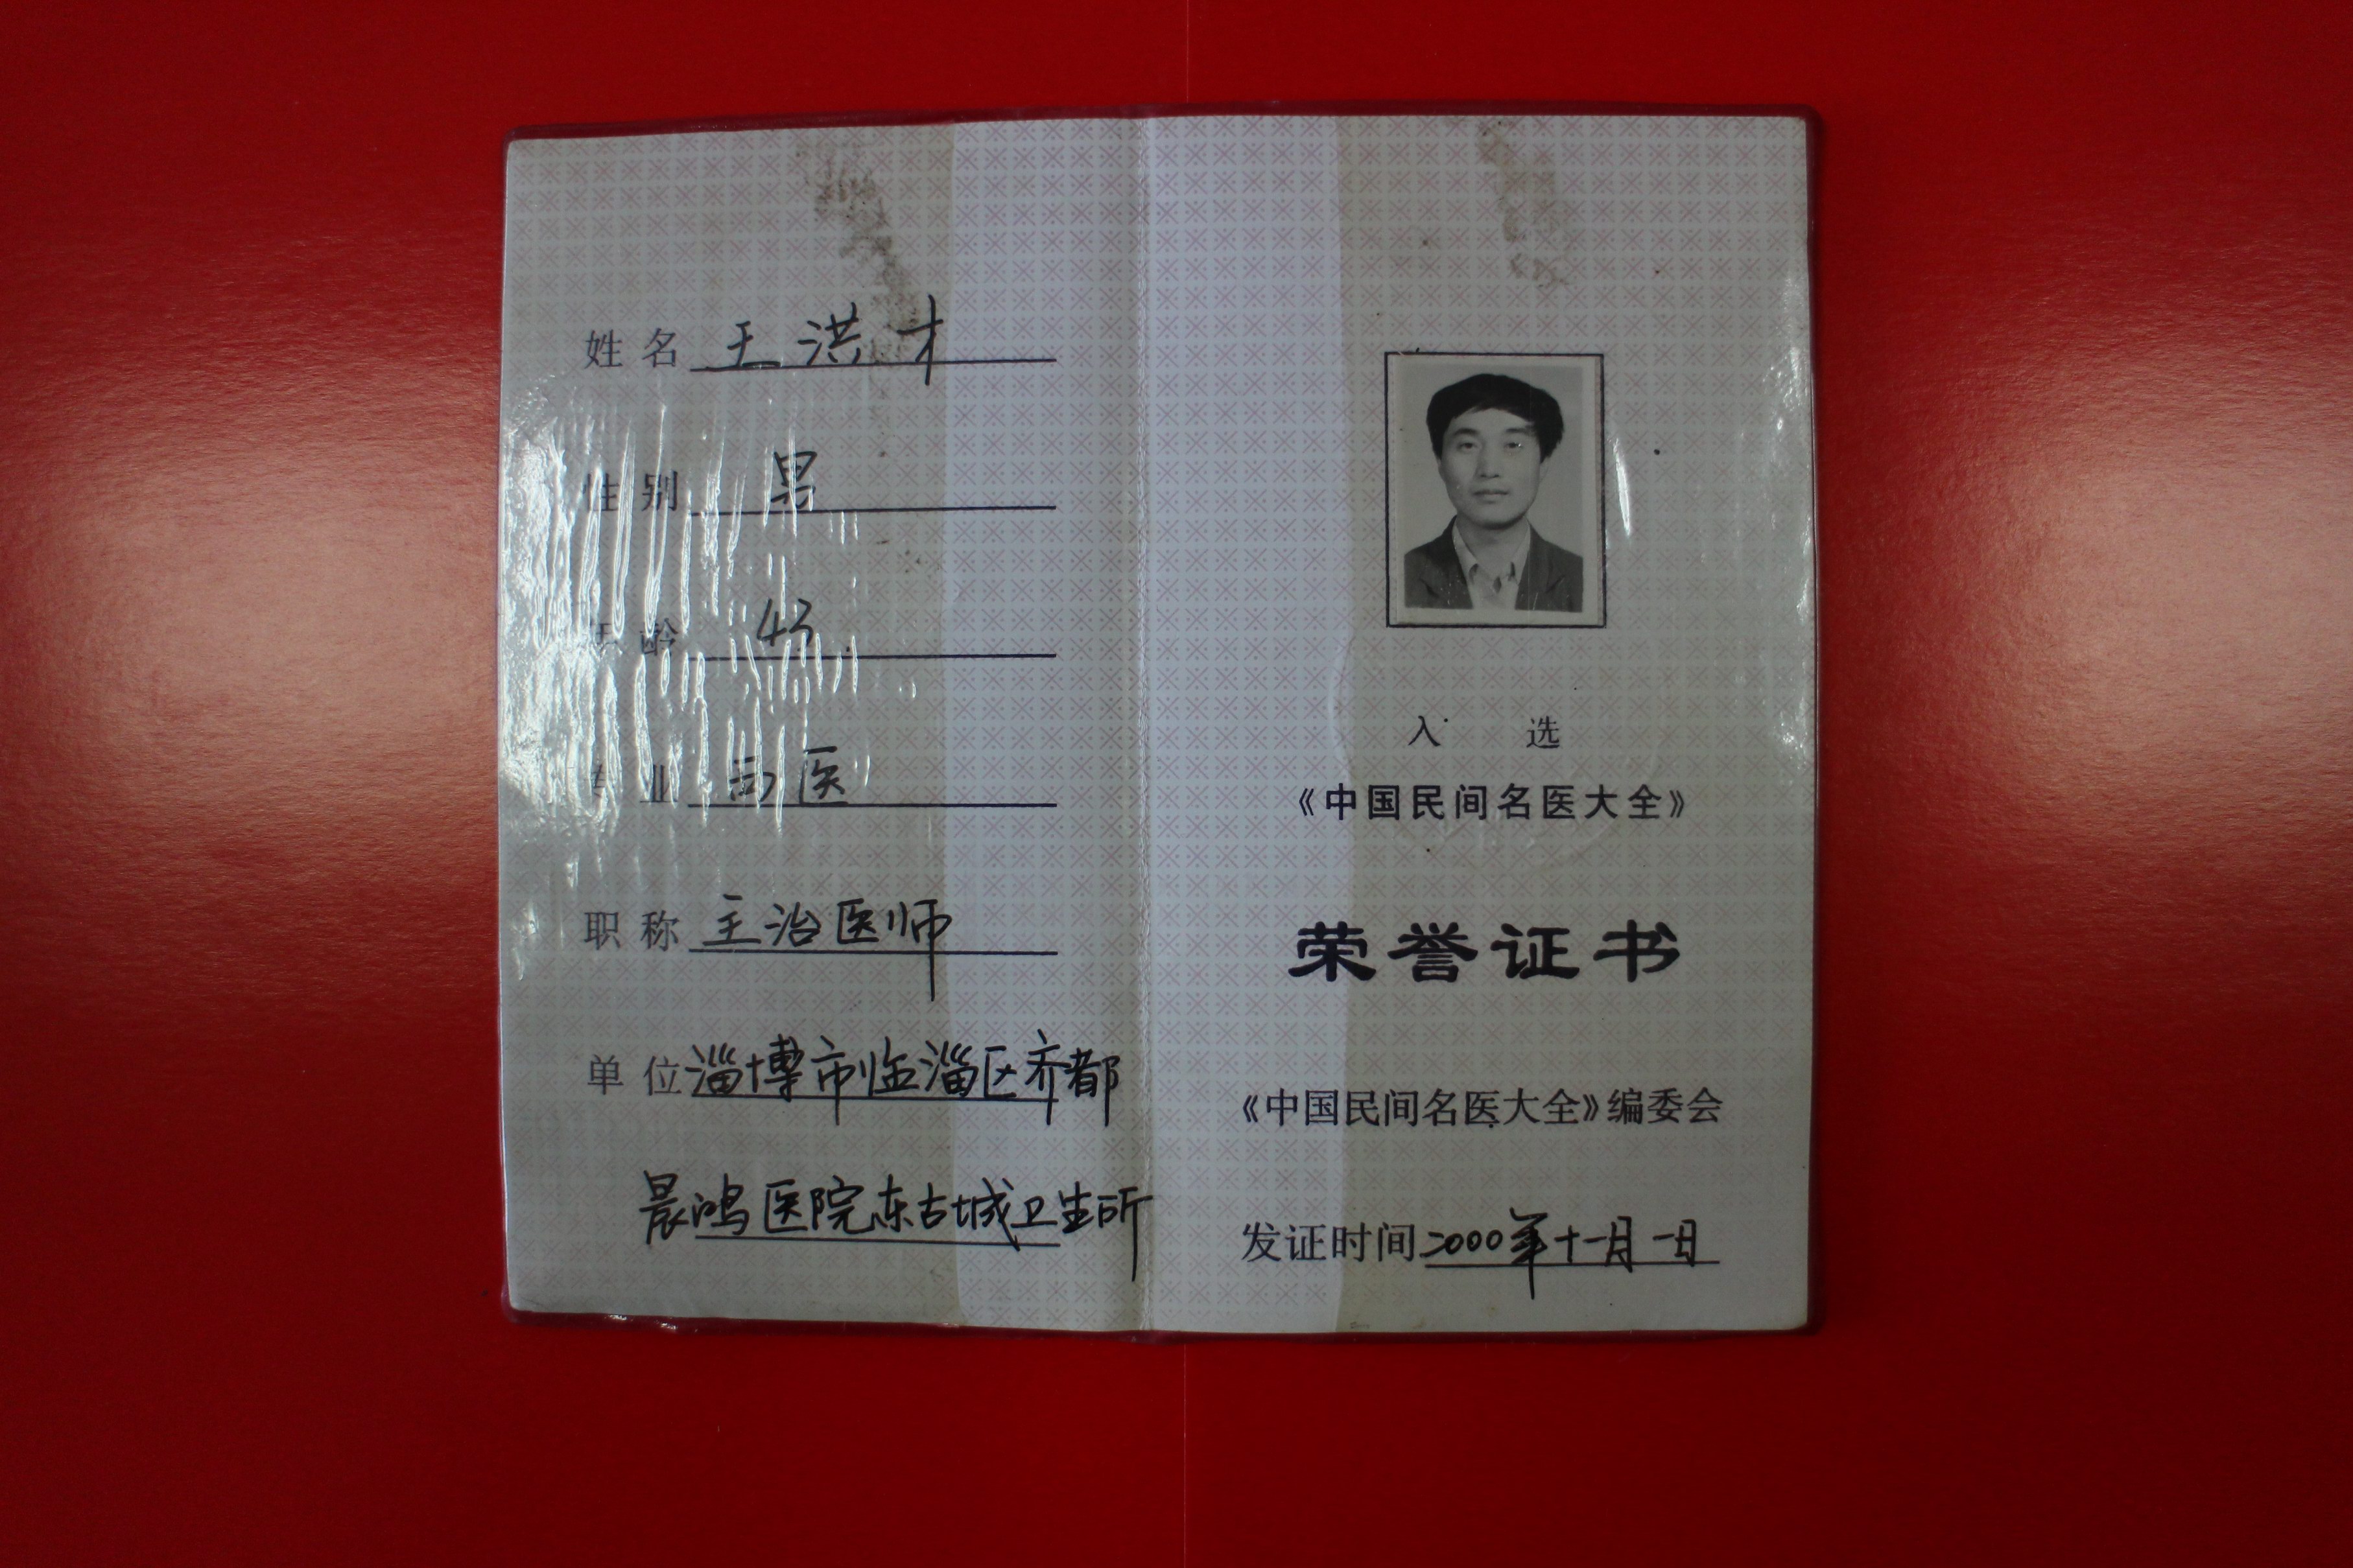 姓名 王洪才
性别 男
年龄 43
专业 西医
职称 主治医师
单位 淄博市临淄区齐都
晨鸿医院东古城卫生所
入选
《中国民间名医大全》
荣誉证书
《中国民间名医大全》编委会
发证时间 2000年十一月一日